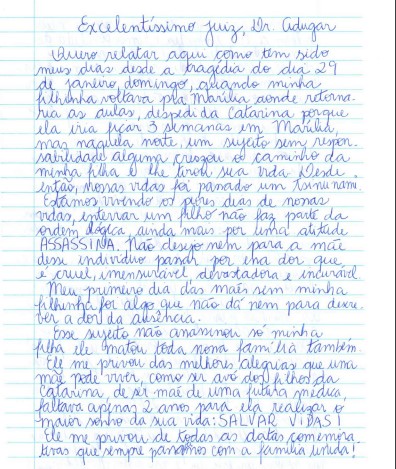 Excelentíssimo Juiz, Dr. Adugar
Quero relatar aqui como tem sido
meus dias desde a tragédia do dia 29
de janeiro, domingo, quando minha
filhinha voltava pra Marília aonde retorna-
ria as aulas, despedi da Catarina porque
ela iria ficar 3 semanas em Marília,
mas naquela noite, um sujeito sem respon-
sabilidade alguma cruzou o caminho da
minha filha e lhe tirou sua vida. Desde
então, nossas vidas foi passado um tsunami.
Estamos vivendo os piores dias de nossas
vidas, enterrar um filho não faz parte da
ordem lógica, ainda mais por uma atitude
ASSASSINA. Não desejo nem para a mãe
desse indivíduo passar por essa dor que
é cruel, imensurável, devastadora e incurável
Meu primeiro dia das mães sem minha
filhinha foi algo que não dá nem para descre-
ver a dor da ausência.
Esse sujeito não assassinou só minha
filha ele matou toda nossa família também.
Ele me privou das melhores alegrias que uma
mãe pode viver, como ser avó dos filhos da
Catarina, de ser mãe de uma futura médica,
faltava apenas 2 anos para ela realizar o
maior sonho da sua vida: SALVAR VIDAS!
Ele me privou de todas as datas comemora-
tivas que sempre passamos com a família unida!